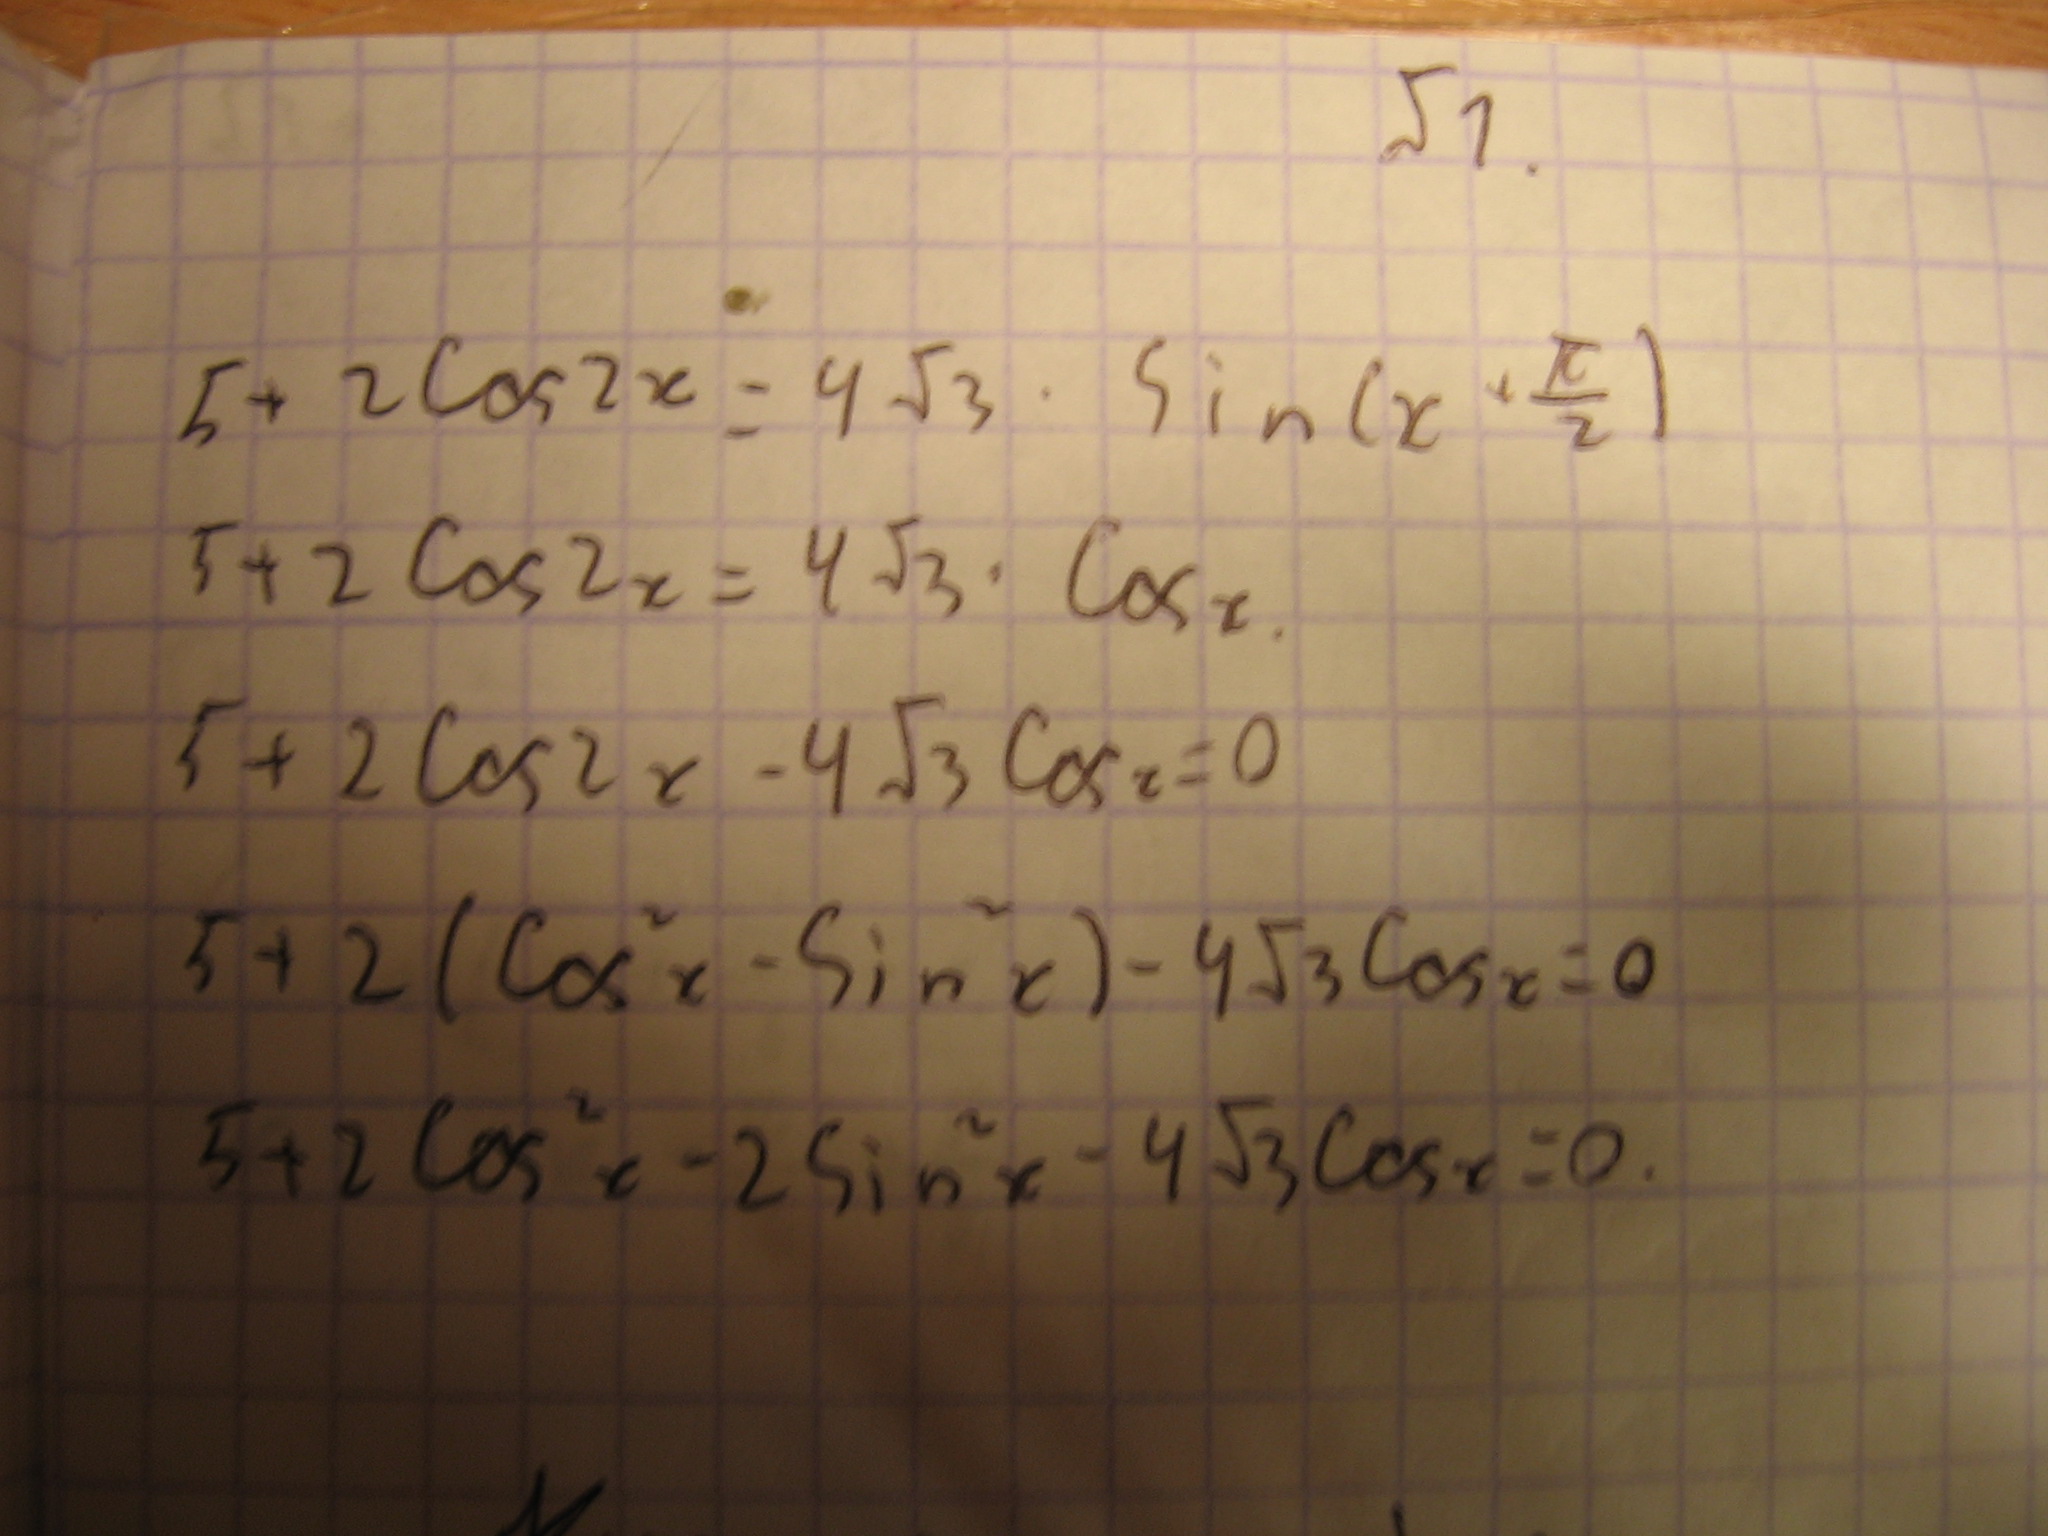 √1.
5+2Cos2x=4√3·Sin(x+π/2)
5+2Cos2x=4√3·Cosx.
5+2Cos2x-4√3Cosx=0
5+2(Cos²x-Sin²x)-4√3Cosx=0
5+2Cos²x-2Sin²x-4√3Cosx=0.